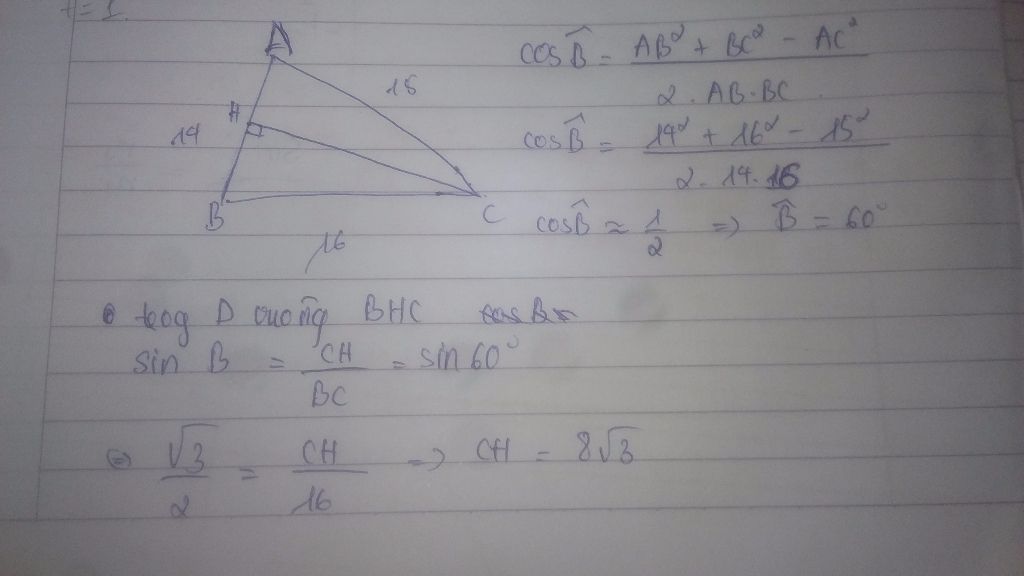 t = 1.
A
15
H
14
B
C
16
cos B̂ = (AB² + BC² - AC²) / (2 . AB . BC)
cos B̂ = (14² + 16² - 15²) / (2 . 14 . 16)
cos B̂ ≈ 1/2 => B̂ = 60°
D vuông BHC
sin B = CH/BC = sin 60°
⇔ √3/2 = CH/16 => CH = 8√3